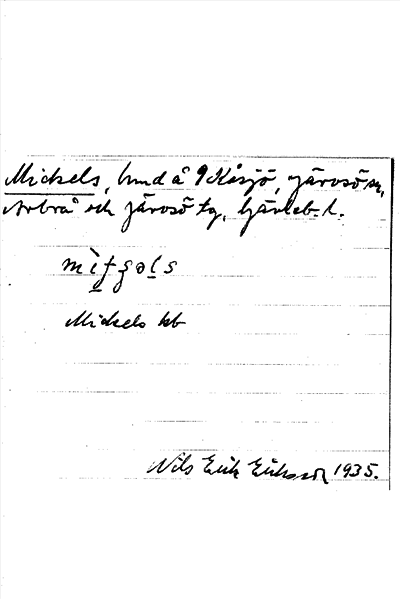 Mickels, hmd å 9 Kåsjö, Järvsö sn,
Arbrå och Järvsö tg, Gävleb. l.
Mickels kb
Nils Erik Eriksson 1935.